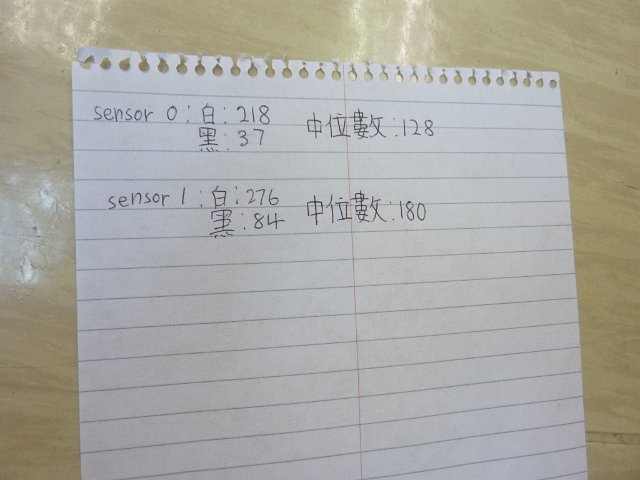 sensor 0 : 白 : 218 中位數 : 128
黑 : 37
sensor 1 : 白 : 276 中位數 : 180
黑 : 84